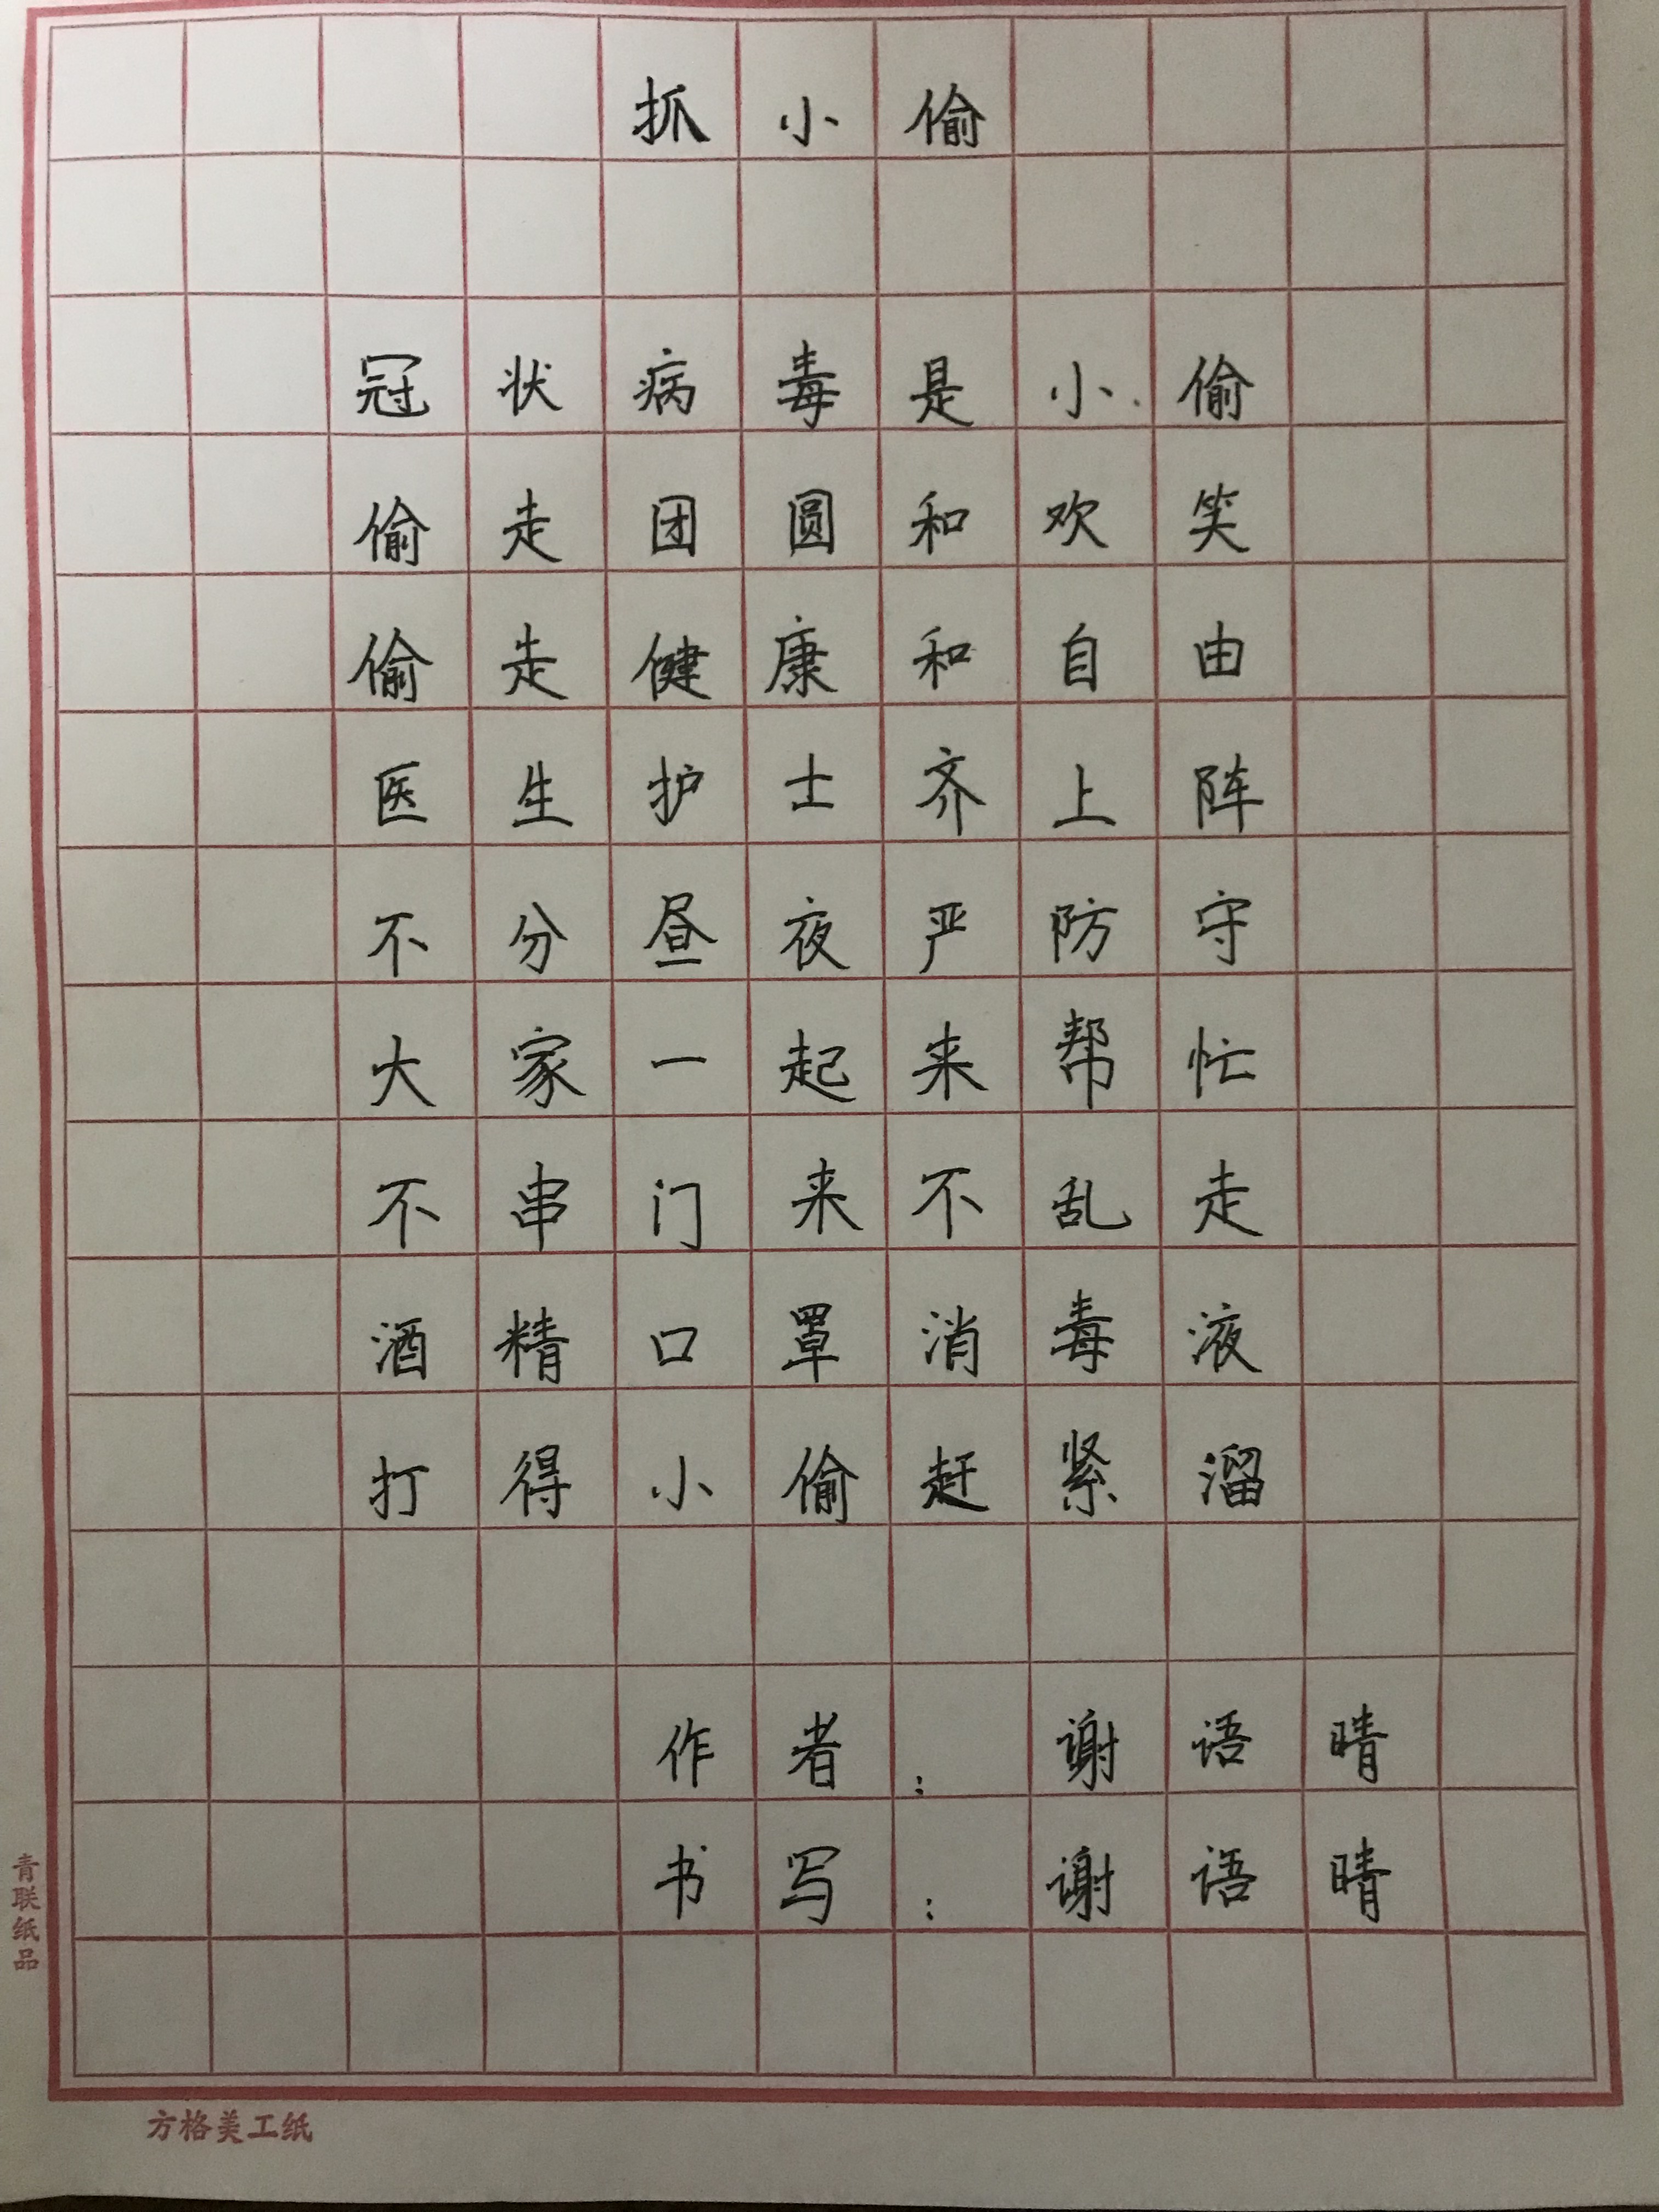 抓小偷
冠状病毒是小偷
偷走团圆和欢笑
偷走健康和自由
医生护士齐上阵
不分昼夜严防守
大家一起来帮忙
不串门来不乱走
酒精口罩消毒液
打得小偷赶紧溜
作者：谢语晴
书写：谢语晴
青联纸品
方格美工纸